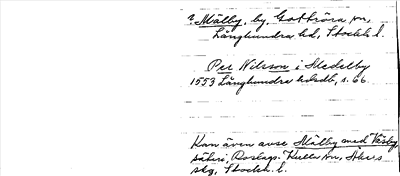 ? Mälby, by, Gottröra sn,
Långhundra hd, Stockh. l.
Per Nilsson i Medelby
1553 Långhundra hdsdb, s. 66
Kan även avse Mälby med Väsby,
säteri, Roslags-Kulla sn, Åkers
skg, Stockh. l.